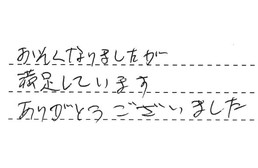 おそくなりましたが
満足しています
ありがとうございました